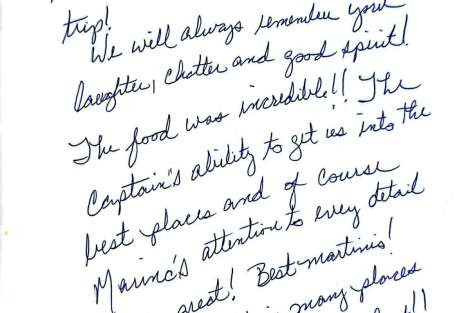 trip!
We will always remember your
laughter, chatter and good spirit!
The food was incredible!! The
Captain's ability to get us into the
best places and of course
attention to every detail
great! Best martinis!
many places